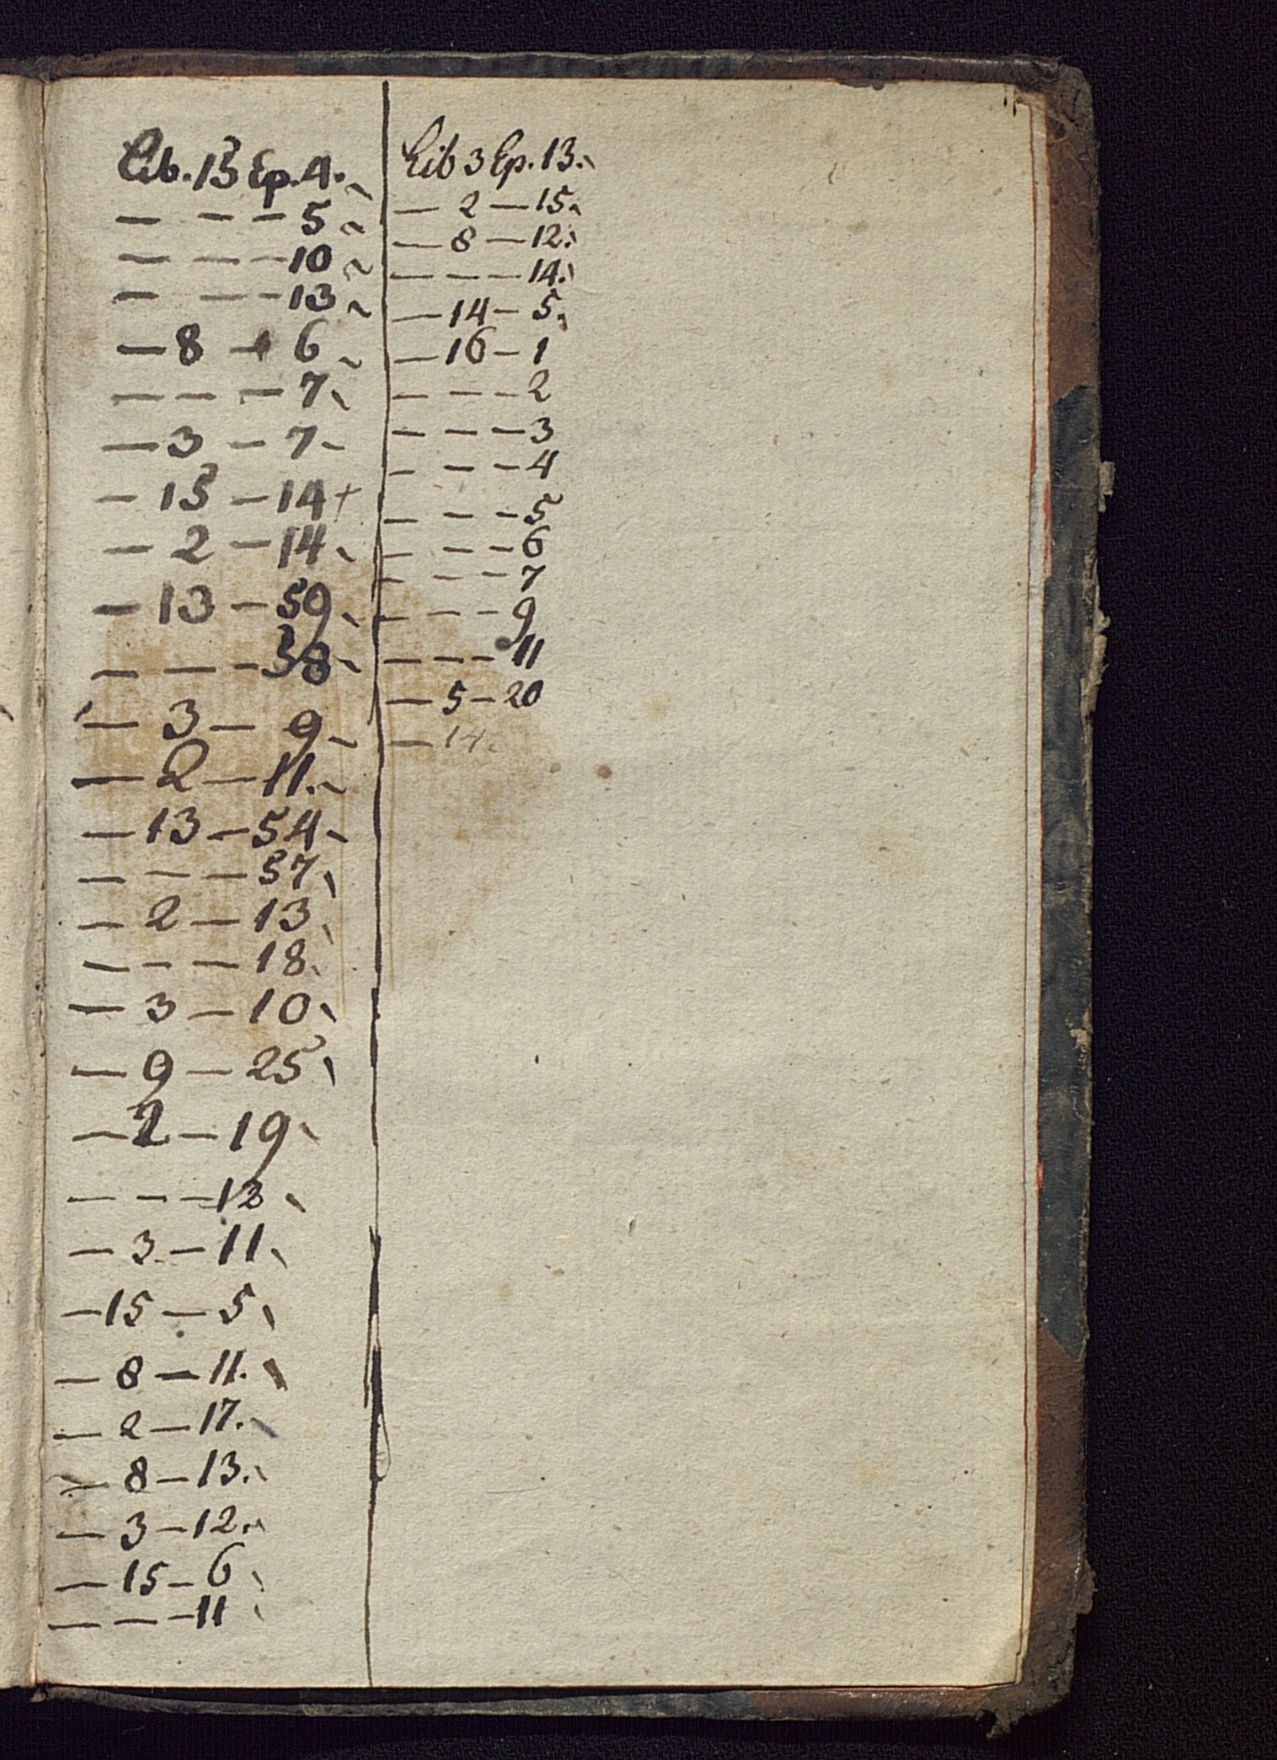 Lib. 13 Ep. 4.
— — — 5
— — — 10
— — — 13
— 8 — 6
— — — 7
— 3 — 7
— 15 — 14 +
— 2 — 14
— 13 — 59
— — — 38
— 3 — 9
— 2 — 11.
— 13 — 54
— — — 57
— 2 — 13
— — — 18
— 3 — 10
— 9 — 25
— 2 — 19
— — — 12
— 3 — 11
— 15 — 5
— 8 — 11.
— 2 — 17.
— 8 — 13.
— 3 — 12.
— 15 — 6
— — — 11
Lib 3 Ep. 13.
— 2 — 15.
— 8 — 12.
— — — 14.
— 14 — 5.
— 16 — 1
— — — 2
— — — 3
— — — 4
— — — 5
— — — 6
— — — 7
— — — 9
— — — 11
— 5 — 20
— 14.